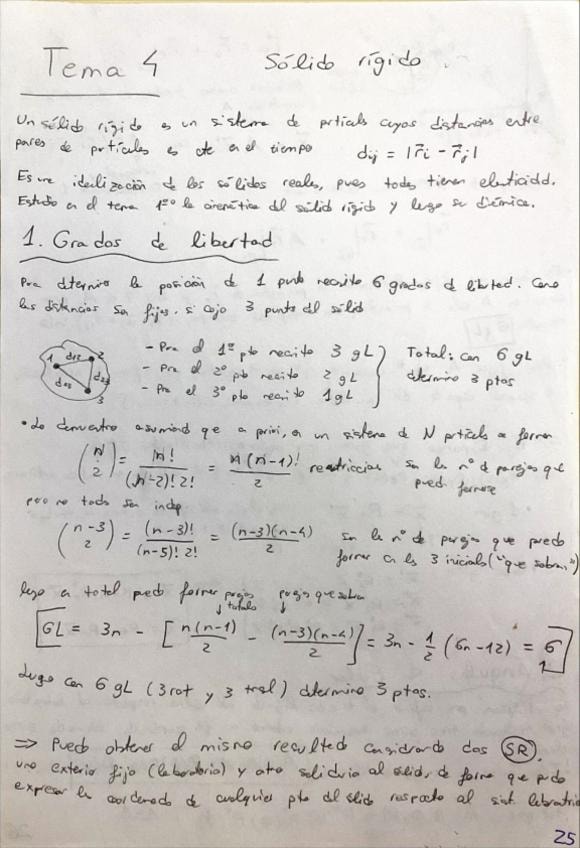 Tema 4 Sólido rígido.
Un sólido rígido es un sistema de prtícls cuyas distancias entre
pares de prtículas es cte en el tiempo dij = |r⃗i - r⃗j|
Es una idealización de los sólidos reales, pues todos tienen elasticidd.
Estudio en el tema 1º la cinemática del sólido rígido y luego su dinámica.
1. Grados de libertad
Pra dtermino la posición de 1 punto necesito 6 grados d libertad. Como
las distancias son fijas, si cojo 3 puntos del sólid
1 d12 2 d23 d13 3
- Pra el 1er pto necsito 3 gL
- Pra el 2º pto necsito 2 gL
- Pra el 3º pto necsito 1 gL
Total: con 6 gL
dtermino 3 ptos
• Lo demuestro asumiend que a priori, en un sistema de N prtícls se forman
(N 2) = n! / (n-2)! 2! = n(n-1)! / 2 restriccions son ls nº d parejas que
pueden formarse
pero no tods son indep
(n-3 2) = (n-3)! / (n-5)! 2! = (n-3)(n-4) / 2 son ls nº d parejas que puedo
formar con ls 3 iniciales ("que sobran")
luego en total puedo formar parejas totales parejas que sobran
GL = 3n - [n(n-1) / 2 - (n-3)(n-4) / 2] = 3n - 1/2 (6n-12) = 6
Luego con 6 gL (3 rot y 3 tral) dtermino 3 ptos.
⇒ Puedo obtener el mismo resultado considrando dos SR,
uno exterior fijo (laboratorio) y otro solidario al sólido, de forma que puedo
expresar la coordenada de cualquier pto del sólido respecto al sist. laboratorio
25